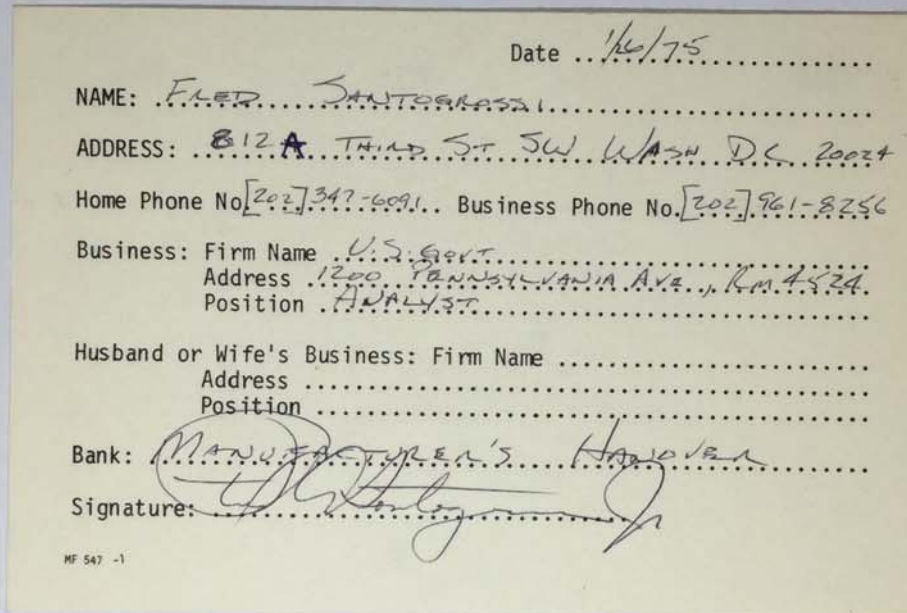 Date ..1/26/75..................
NAME: FRED SANTOGROSSI
ADDRESS: 812A THIRD ST SW WASH DC 20024
Home Phone No[202]347-6091.. Business Phone No.[202]961-8256
Business: Firm Name U.S. GOVT
Address 1200 PENNSYLVANIA AVE, RM 4524
Position ANALYST
Husband or Wife's Business: Firm Name ..........................
Address ..........................................
Position .........................................
Bank: MANUFACTURER'S HANOVER
Signature:
MF 547 -1